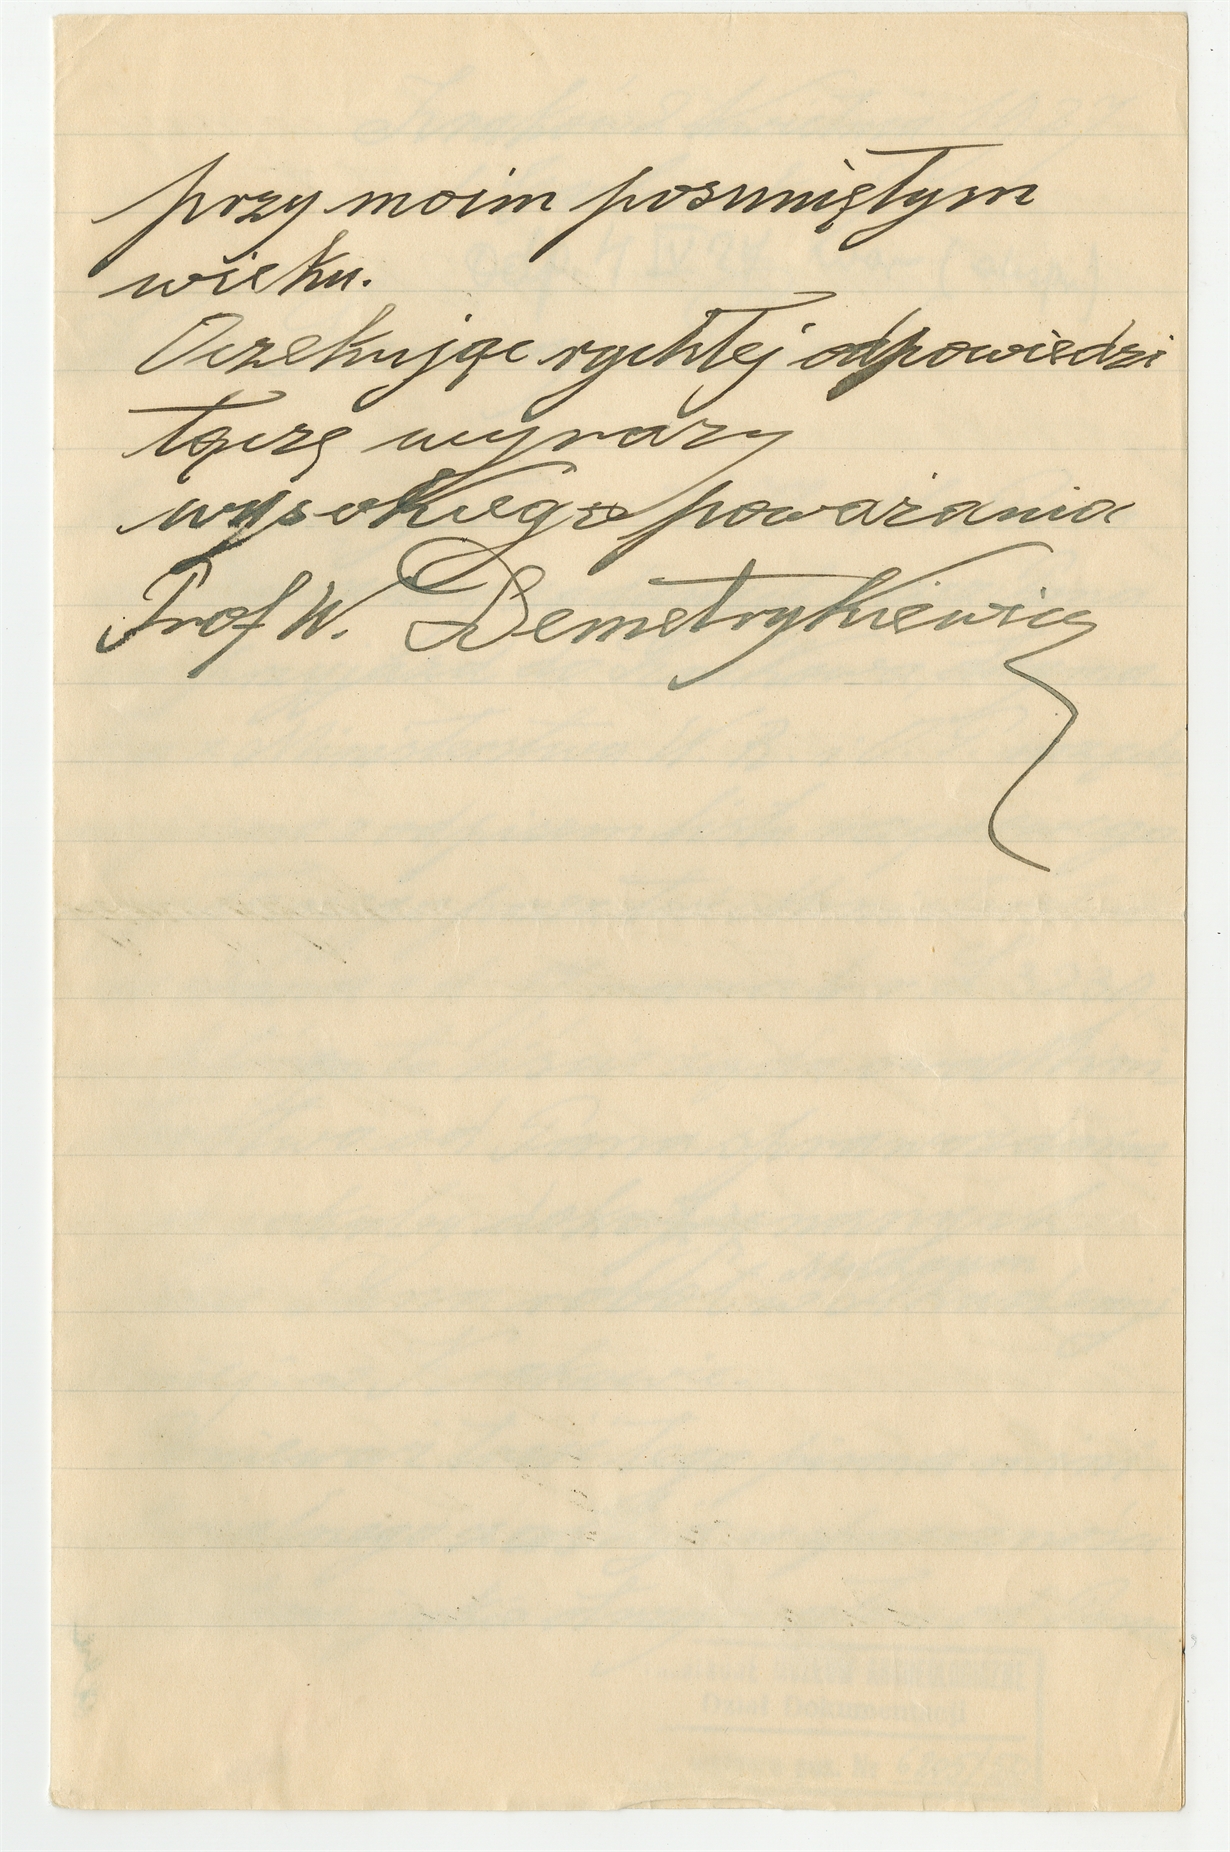 przy moim posuniętym
wieku.
Oczekując rychłej odpowiedzi
łączę wyrazy
wysokiego poważania
Prof W. Demetrykiewicz